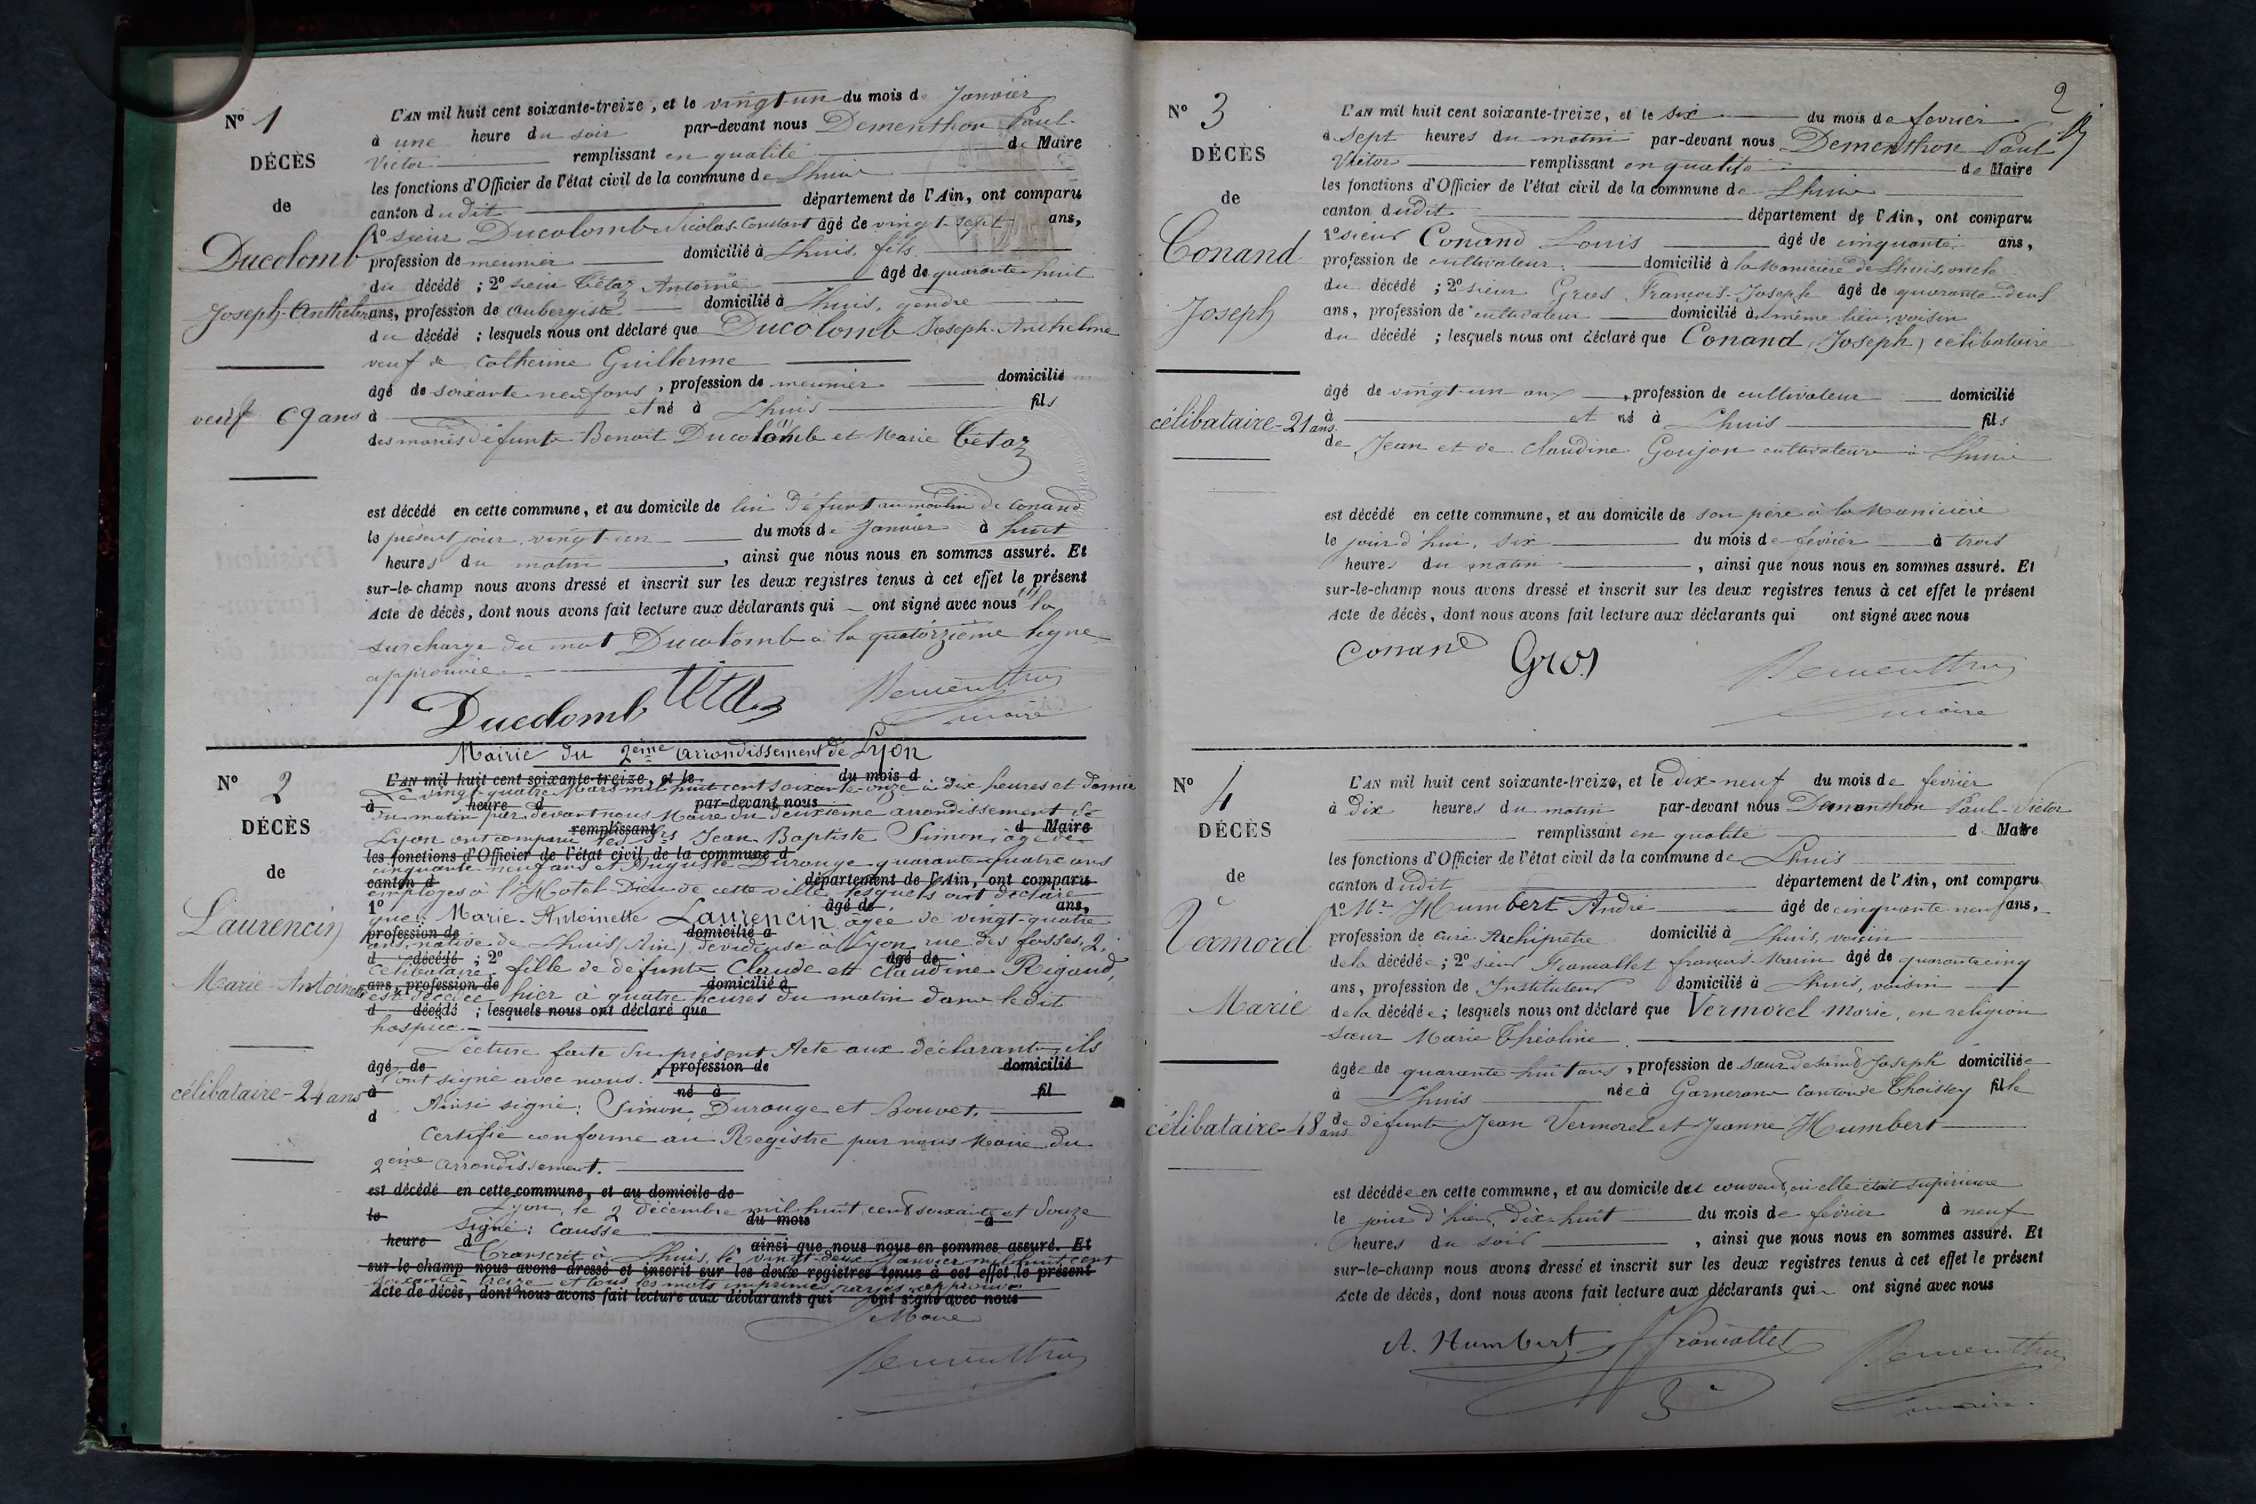 N° 1
DÉCÈS
de
Ducolomb
Joseph-Anthelme
veuf 69 ans
L'AN mil huit cent soixante-treize, et le vingt-un du mois d Janvier
à une heure du soir par-devant nous Dementhon Paul-
Victor remplissant en qualité de Maire
les fonctions d'Officier de l'état civil de la commune de Lhuis
canton dudit département de l'Ain, ont comparu
1° sieur Ducolomb Nicolas-Constant âgé de vingt-sept ans,
profession de meunier domicilié à Lhuis, fils
du décédé ; 2° sieur Tétaz Antoine âgé de quarante huit
ans, profession de aubergiste domicilié à Lhuis, gendre
du décédé ; lesquels nous ont déclaré que Ducolomb Joseph-Anthelme
veuf de Catherine Guillerme
âgé de soixante-neuf ans, profession de meunier domicilié
à et né à Lhuis fils
des mariés défunts Benoit Ducolomb et Marie Tétaz
est décédé en cette commune, et au domicile de lui défunt au moulin de Conand
le présent jour, vingt-un du mois de Janvier à huit
heures du matin, ainsi que nous nous en sommes assuré. Et
sur-le-champ nous avons dressé et inscrit sur les deux registres tenus à cet effet le présent
Acte de décès, dont nous avons fait lecture aux déclarants qui ont signé avec nous la
surcharge du mot Ducolomb à la quatorzième ligne
approuvée.
Ducolomb Tétaz Dementhon
maire
N° 2
DÉCÈS
de
Laurencin
Marie-Antoinette
célibataire-24 ans
Mairie du 2eme arrondissement de Lyon
L'AN mil huit cent soixante-treize, et le du mois d
Le vingt-quatre Mars mil huit cent soixante-onze à dix heures et demie
à heure d par-devant nous
du matin par devant nous Maire du deuxième arrondissement de
remplissant d Maire
Lyon ont comparu les Srs Jean Baptiste Simon, âgé de
les fonctions d'Officier de l'état civil de la commune d
cinquante-neuf ans et Auguste Durouge, quarante-quatre ans
canton d département de l'Ain, ont comparu
employés à l'Hôtel-Dieu de cette ville lesquels ont déclaré
1° âgé de ans,
que : Marie-Antoinette Laurencin âgée de vingt-quatre
profession de domicilié à
ans, native de Lhuis (Ain), dévideuse à Lyon, rue des fossés, 2,
d décédé ; 2° âgé de
célibataire, fille de défunts Claude et Claudine Rigaud,
ans, profession de domicilié à
est décédée hier à quatre heures du matin dans ledit
d décédé ; lesquels nous ont déclaré que
hospice.
Lecture faite du présent Acte aux déclarants, ils
âgé de, profession de domicilié
l'ont signé avec nous.
à né à fil
d Ainsi signé : Simon, Durouge et Bouvet.
Certifié conforme au Registre par nous Maire du
2eme arrondissement.
est décédé en cette commune, et au domicile de
Lyon, le 2 décembre mil huit cent soixante et douze
le du mois à
signé : Causse
heure d, ainsi que nous nous en sommes assuré. Et
Transcrit à Lhuis, le vingt-deux Janvier mil huit cent
sur-le-champ nous avons dressé et inscrit sur les deux registres tenus à cet effet le présent
soixante-treize et tous les mots imprimés rayés approuvés
Acte de décès, dont nous avons fait lecture aux déclarants qui ont signé avec nous
Maire
Dementhon
2
N° 3
DÉCÈS
de
Conand
Joseph
célibataire-21 ans
L'AN mil huit cent soixante-treize, et le six du mois de février
à sept heures du matin par-devant nous Dementhon Paul
Victor remplissant en qualité de Maire
les fonctions d'Officier de l'état civil de la commune de Lhuis
canton dudit département de l'Ain, ont comparu
1° sieur Conand Louis âgé de cinquante ans,
profession de cultivateur domicilié à la Manicière de Lhuis, oncle
du décédé ; 2° sieur Gros François-Joseph âgé de quarante-deux
ans, profession de cultivateur domicilié à même lieu, voisin
du décédé ; lesquels nous ont déclaré que Conand (Joseph) célibataire
âgé de vingt-un ans, profession de cultivateur domicilié
à et né à Lhuis fils
de Jean et de Claudine Goujon cultivateurs à Lhuis
est décédé en cette commune, et au domicile de son père à la Manicière
le jour d'hui, six du mois de février à trois
heures du matin, ainsi que nous nous en sommes assuré. Et
sur-le-champ nous avons dressé et inscrit sur les deux registres tenus à cet effet le présent
Acte de décès, dont nous avons fait lecture aux déclarants qui ont signé avec nous
Conand Gros Dementhon
maire
N° 4
DÉCÈS
de
Vermorel
Marie
célibataire-48 ans
L'AN mil huit cent soixante-treize, et le dix-neuf du mois de février
à dix heures du matin par-devant nous Dementhon Paul-Victor
remplissant en qualité d Maire
les fonctions d'Officier de l'état civil de la commune de Lhuis
canton dudit département de l'Ain, ont comparu
1° Mr Humbert André âgé de cinquante neuf ans,
profession de curé Archiprêtre domicilié à Lhuis, voisin
de la décédée ; 2° sieur Framallet françois-Marin âgé de quarante cinq
ans, profession de Instituteur domicilié à Lhuis, voisin
de la décédée ; lesquels nous ont déclaré que Vermorel Marie, en religion
sœur Marie Théoline
âgée de quarante-huit ans, profession de sœur de saint Joseph domiciliée
à Lhuis née à Garnerans canton de Thoissey fille
de défunts Jean Vermorel et Jeanne Humbert
est décédée en cette commune, et au domicile du couvent, où elle était supérieure
le jour d'hier, dix-huit du mois de février à neuf
heures du soir, ainsi que nous nous en sommes assuré. Et
sur-le-champ nous avons dressé et inscrit sur les deux registres tenus à cet effet le présent
Acte de décès, dont nous avons fait lecture aux déclarants qui ont signé avec nous
A. Humbert Framallet Dementhon
maire